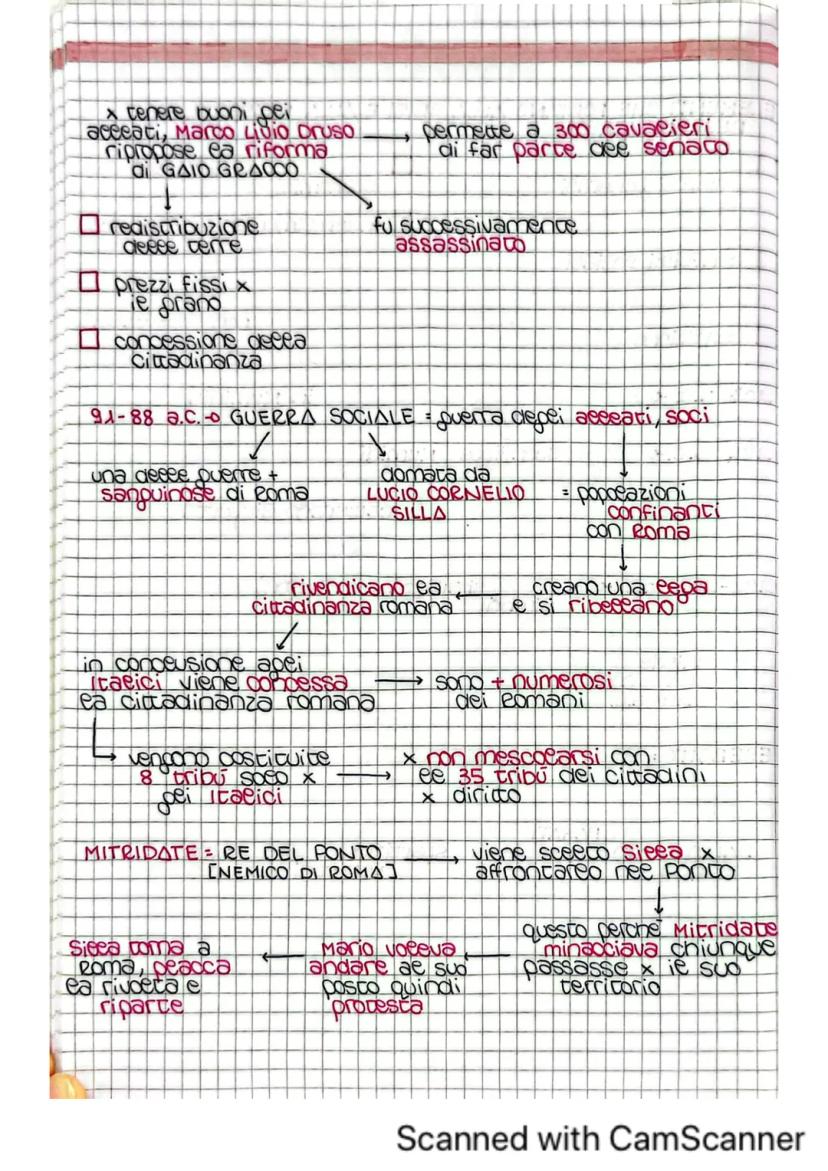 x tenere buoni gli
alleati, Marco Livio Druso → permette a 300 cavalieri
ripropose la riforma di far parte del senato
di GAIO GRACCO
redistribuzione fu successivamente
delle terre assassinato
prezzi fissi x
il grano
concessione della
cittadinanza
91-88 a.C.→ GUERRA SOCIALE = guerra degli alleati, soci
una delle guerre + domata da
sanguinose di Roma LUCIO CORNELIO = popolazioni
SILLA confinanti
con Roma
rivendicano la creano una lega
cittadinanza romana e si ribellano
in conclusione agli
Italici viene concessa → sono + numerosi
la cittadinanza romana dei Romani
vengono costituite x non mescolarsi con
8 tribù solo x → le 35 tribù dei cittadini
gli Italici x diritto
MITRIDATE = RE DEL PONTO → viene scelto Silla x
[NEMICO DI ROMA] affrontarlo nel Ponto
questo perché Mitridate
Silla torna a Mario voleva minacciava chiunque
Roma, placca andare al suo passasse x il suo
la rivolta e posto quindi territorio
riparte protesta
Scanned with CamScanner